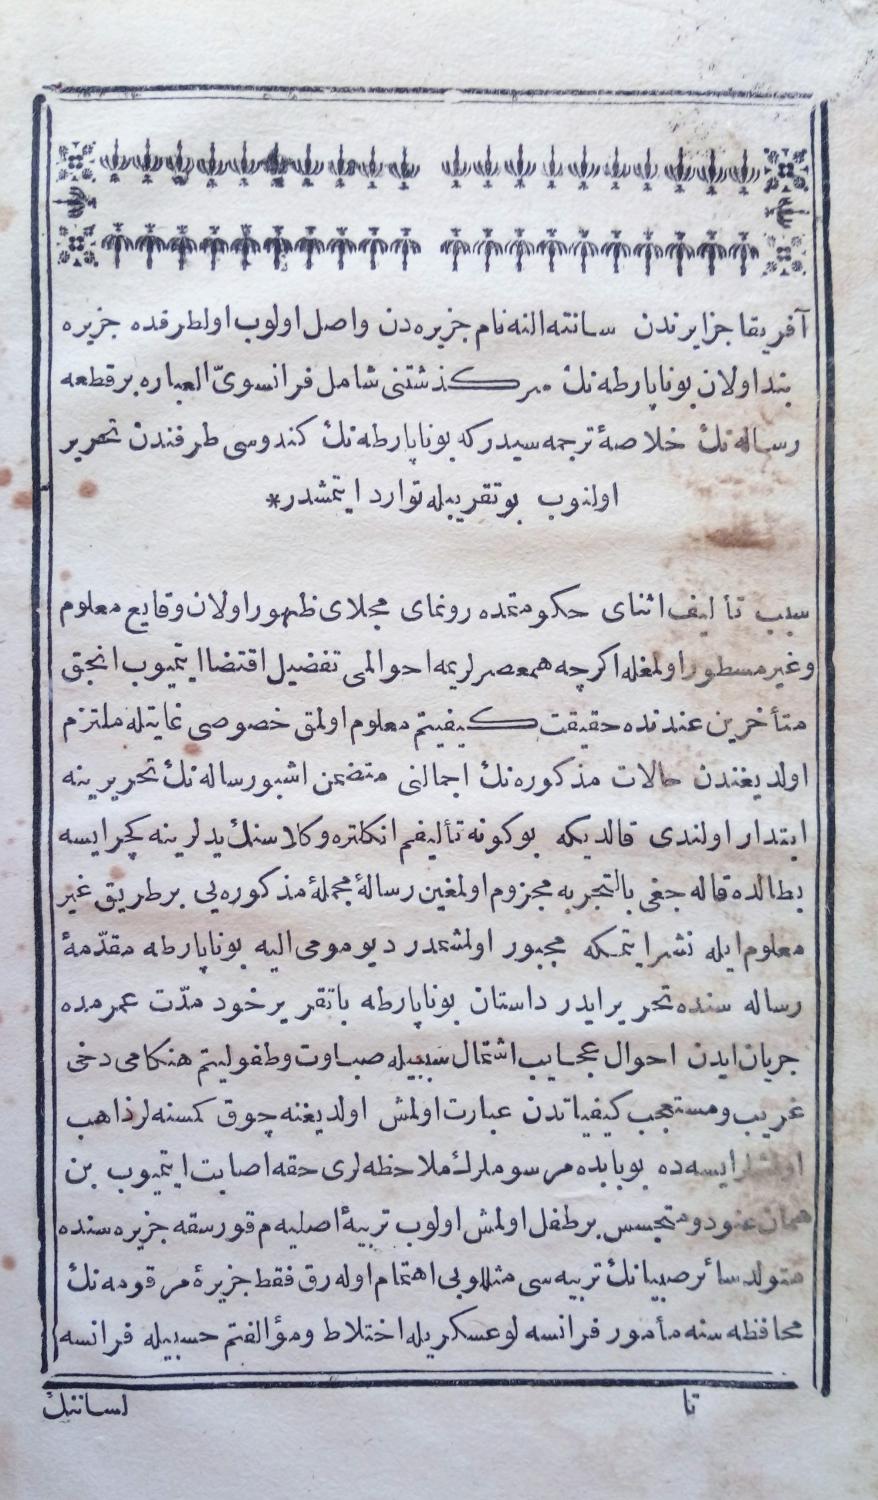 آفریقا جزایرندن سانته النه نام جزیره دن واصل اولوب اولطرفده جزیره
بند اولان بوناپارطه نڭ سرکذشتنی شامل فرانسوی العباره بر قطعه
رساله نڭ خلاصهٔ ترجمه سیدر که بوناپارطه نڭ کندوسی طرفندن تحریر
اولنوب بو تقریبله توارد ایتمشدر*
سبب تألیف اثنای حکومتمده رونمای مجلای ظهور اولان وقایع معلوم
وغیر مسطور اولمغله اکرچه همعصرلریمه احوالمی تفضیل اقتضا ایتمیوب انجق
متأخرین عندنده حقیقت کیفیتم معلوم اولمق خصوصی غایتله ملتزم
اولدیغندن حالات مذکوره نڭ اجمالنی متضمن اشبو رساله نڭ تحریرینه
ابتدار اولندی قالدیکه بو کونه تألیفم انکلتره وکلاسنڭ یدلرینه کچر ایسه
بطالده قاله جغی بالتجربه مجزوم اولمغین رسالهٔ مجملهٔ مذکوره یی بر طریق غیر
معلوم ایله نشر ایتمکه مجبور اولشمدر دیو مومی الیه بوناپارطه مقدّمهٔ
رساله سنده تحریر ایدر داستان بوناپارطه باتقریر خود مدّت عمرمده
جریان ایدن احوال عجایب اشتمال سببیله صباوت وطفولیتم هنکامی دخی
غریب ومستعجب کیفیاتدن عبارت اولمش اولدیغنه چوق کمسنه لر ذاهب
اولمشلر ایسه ده بو بابده مرسوملرڭ ملاحظه لری حقه اصابت ایتمیوب بن
همان عنود ومتجسس بر طفل اولمش اولوب تربیهٔ اصلیه م قورسقه جزیره سنده
متولد سائر صبیانڭ تربیه سی مثللو بی اهتمام اوله رق فقط جزیرهٔ مرقومه نڭ
محافظه سنه مأمور فرانسه لو عسکریله اختلاط ومؤالفتم حسبیله فرانسه
تا
لساننڭ